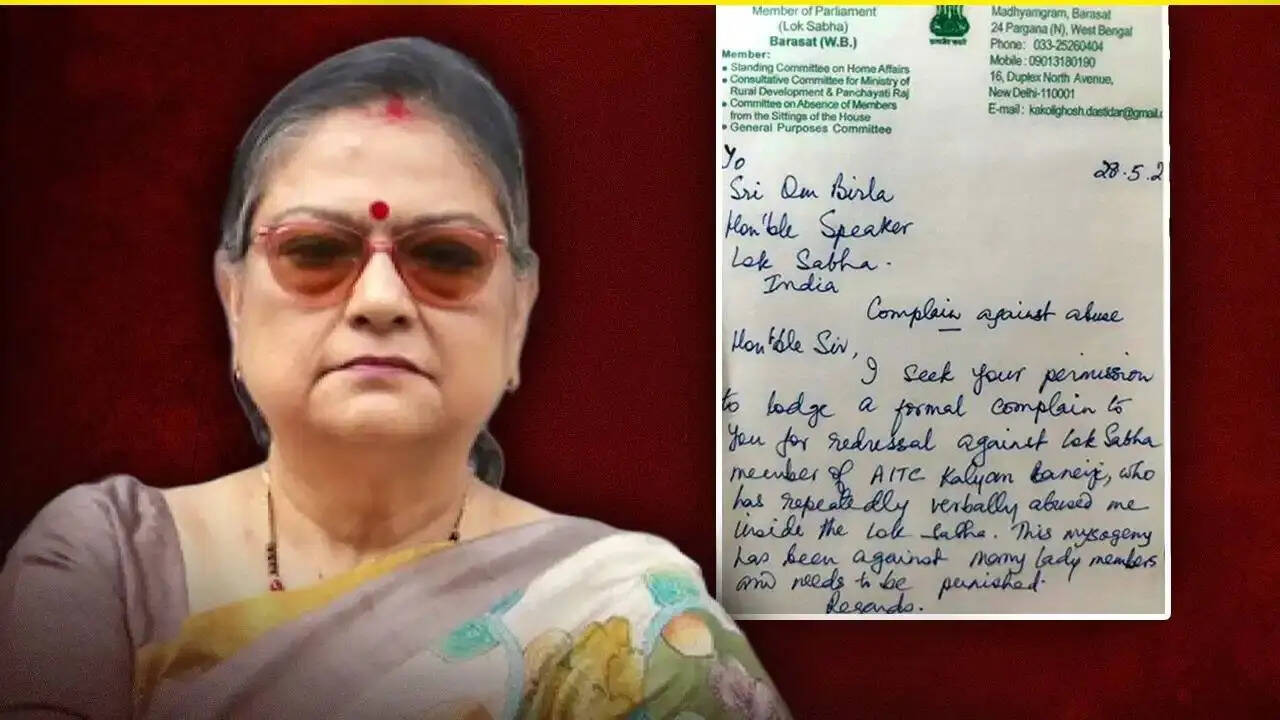 Member of Parliament
(Lok Sabha)
Barasat (W.B.)
Member:
• Standing Committee on Home Affairs
• Consultative Committee for Ministry of
Rural Development & Panchayati Raj
• Committee on Absence of Members
from the Sittings of the House
• General Purposes Committee
Madhyamgram, Barasat
24 Pargana (N), West Bengal
Phone: 033-25260404
Mobile : 09013180190
16, Duplex North Avenue,
New Delhi-110001
E-mail : kakolighosh.dastidar@gmail.c
To
28.5.2
Sri Om Birla
Hon'ble Speaker
Lok Sabha.
India
Complain against abuse
Hon'ble Sir,
I seek your permission
to lodge a formal complain to
you for redressal against Lok Sabha
member of AITC Kalyan Banerje, who
has repeatedly verbally abused me
inside the Lok Sabha. This mysogeny
has been against many lady members
and needs to be punished.
Regards.